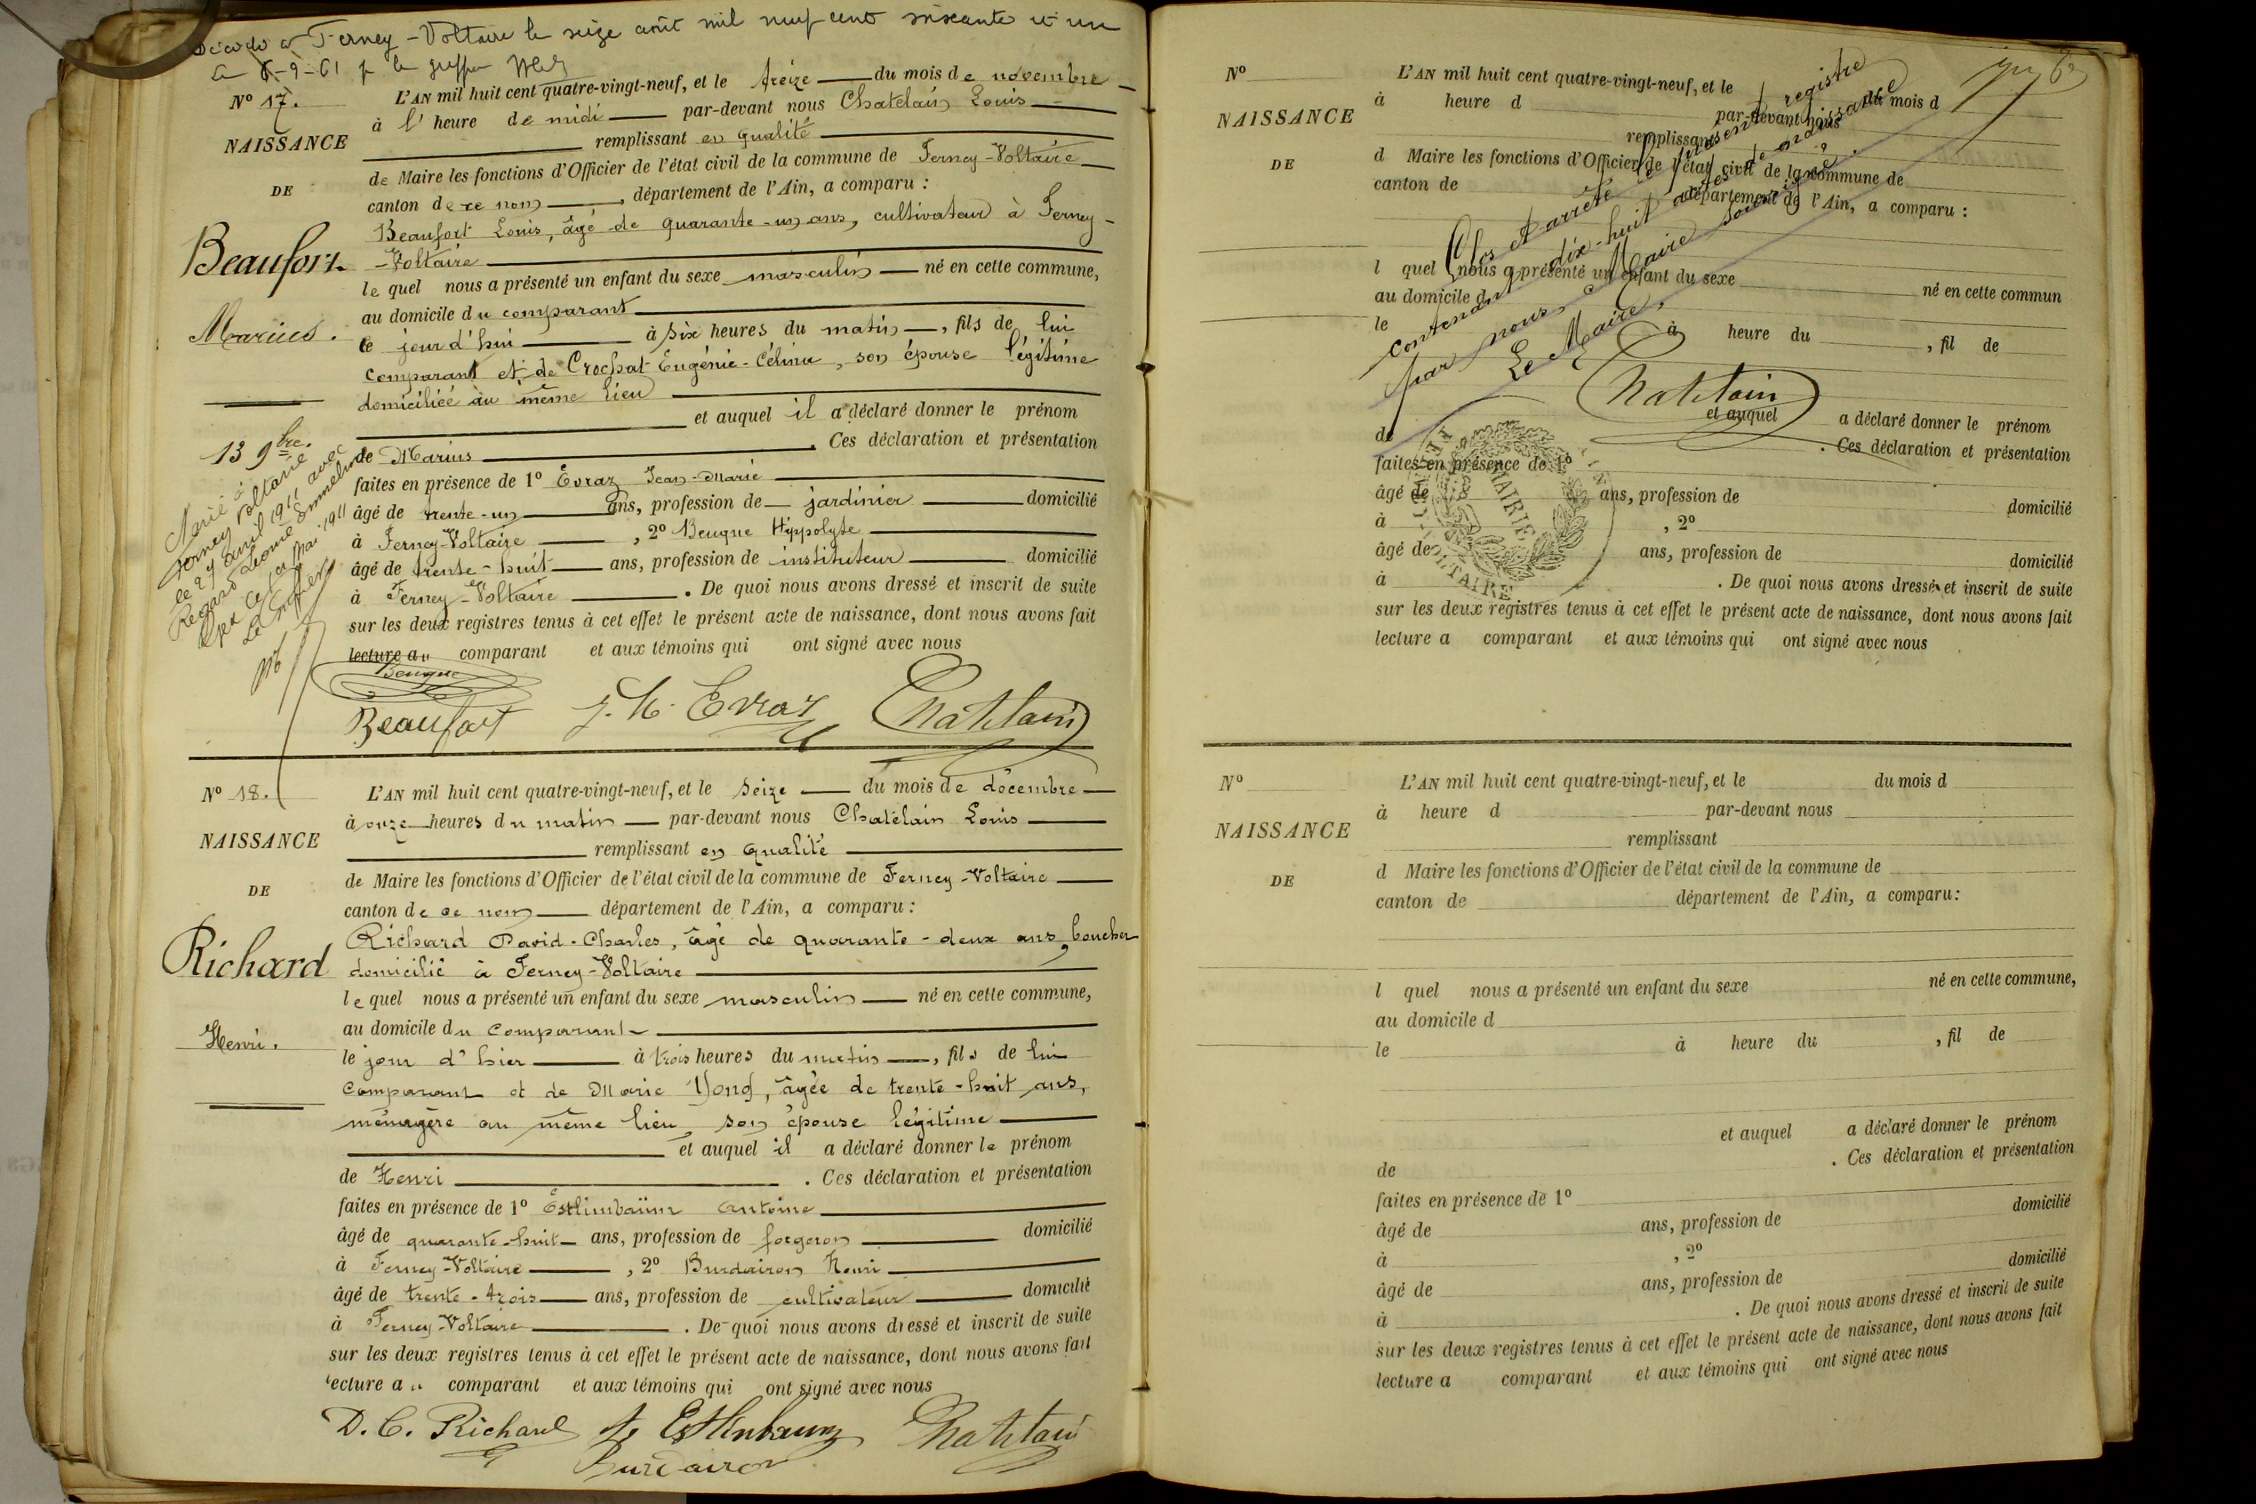 Décédé à Ferney-Voltaire le seize août mil neuf cent soixante et un
Le 6-9-61 p le greffier
N° 17.
NAISSANCE
DE
Beaufort
Marius.
13 9bre.
Marié à
Ferney Voltaire
le 27 avril 1911 avec
Regard Léonie Emmeline
Dont acte le mai 1911
Le Greffier
L'AN mil huit cent quatre-vingt-neuf, et le treize du mois de novembre
à l' heure de midi par-devant nous Chatelain Louis
remplissant en qualité
de Maire les fonctions d'Officier de l'état civil de la commune de Ferney-Voltaire
canton de ce nom, département de l'Ain, a comparu :
Beaufort Louis, âgé de quarante-un ans, cultivateur à Ferney-
-Voltaire
lequel nous a présenté un enfant du sexe masculin né en cette commune,
au domicile du comparant
le jour d'hui à six heures du matin, fils de lui
comparant et de Crochat Eugénie-Célina, son épouse légitime
domiciliée au même lieu
et auquel il a déclaré donner le prénom
de Marius . Ces déclaration et présentation
faites en présence de 1° Evraz Jean-Marie
âgé de trente-un ans, profession de jardinier domicilié
à Ferney-Voltaire, 2° Beuque Hippolyte
âgé de trente-huit ans, profession de instituteur domicilié
à Ferney-Voltaire . De quoi nous avons dressé et inscrit de suite
sur les deux registres tenus à cet effet le présent acte de naissance, dont nous avons fait
lecture au comparant et aux témoins qui ont signé avec nous
Beuque
Beaufort J. M. Evraz Chatelain
N° 18.
NAISSANCE
DE
Richard
Henri.
L'AN mil huit cent quatre-vingt-neuf, et le seize du mois de décembre
à onze heures du matin par-devant nous Chatelain Louis
remplissant en qualité
de Maire les fonctions d'Officier de l'état civil de la commune de Ferney-Voltaire
canton de ce nom département de l'Ain, a comparu :
Richard David-Charles, âgé de quarante-deux ans, boucher
domicilié à Ferney-Voltaire
lequel nous a présenté un enfant du sexe masculin né en cette commune,
au domicile du comparant
le jour d'hier à trois heures du matin, fils de lui
comparant et de Marie Yong, âgée de trente-huit ans,
ménagère au même lieu, son épouse légitime
et auquel il a déclaré donner le prénom
de Henri . Ces déclaration et présentation
faites en présence de 1° Estlimbaüm Antoine
âgé de quarante-huit ans, profession de forgeron domicilié
à Ferney-Voltaire, 2° Burdairon Henri
âgé de trente-trois ans, profession de cultivateur domicilié
à Ferney-Voltaire . De quoi nous avons dressé et inscrit de suite
sur les deux registres tenus à cet effet le présent acte de naissance, dont nous avons fait
lecture au comparant et aux témoins qui ont signé avec nous
D. C. Richard Chatelain
Burdairon
N°
NAISSANCE
DE
L'AN mil huit cent quatre-vingt-neuf, et le du mois d
à heure d par-devant nous
remplissant
d Maire les fonctions d'Officier de l'état civil de la commune de
canton de département de l'Ain, a comparu :
l quel nous a présenté un enfant du sexe né en cette commun
au domicile d
le à heure du , fil de
et auquel a déclaré donner le prénom
de . Ces déclaration et présentation
faites en présence de 1°
âgé de ans, profession de domicilié
à , 2°
âgé de ans, profession de domicilié
à . De quoi nous avons dressé et inscrit de suite
sur les deux registres tenus à cet effet le présent acte de naissance, dont nous avons fait
lecture a comparant et aux témoins qui ont signé avec nous
Clos et arrêté le présent registre
contenant dix-huit actes de naissance
par nous Maire soussigné.
Le Maire,
Chatelain
MAIRIE
N°
NAISSANCE
DE
L'AN mil huit cent quatre-vingt-neuf, et le du mois d
à heure d par-devant nous
remplissant
d Maire les fonctions d'Officier de l'état civil de la commune de
canton de département de l'Ain, a comparu :
l quel nous a présenté un enfant du sexe né en cette commune,
au domicile d
le à heure du , fil de
et auquel a déclaré donner le prénom
de . Ces déclaration et présentation
faites en présence de 1°
âgé de ans, profession de domicilié
à , 2°
âgé de ans, profession de domicilié
à . De quoi nous avons dressé et inscrit de suite
sur les deux registres tenus à cet effet le présent acte de naissance, dont nous avons fait
lecture a comparant et aux témoins qui ont signé avec nous